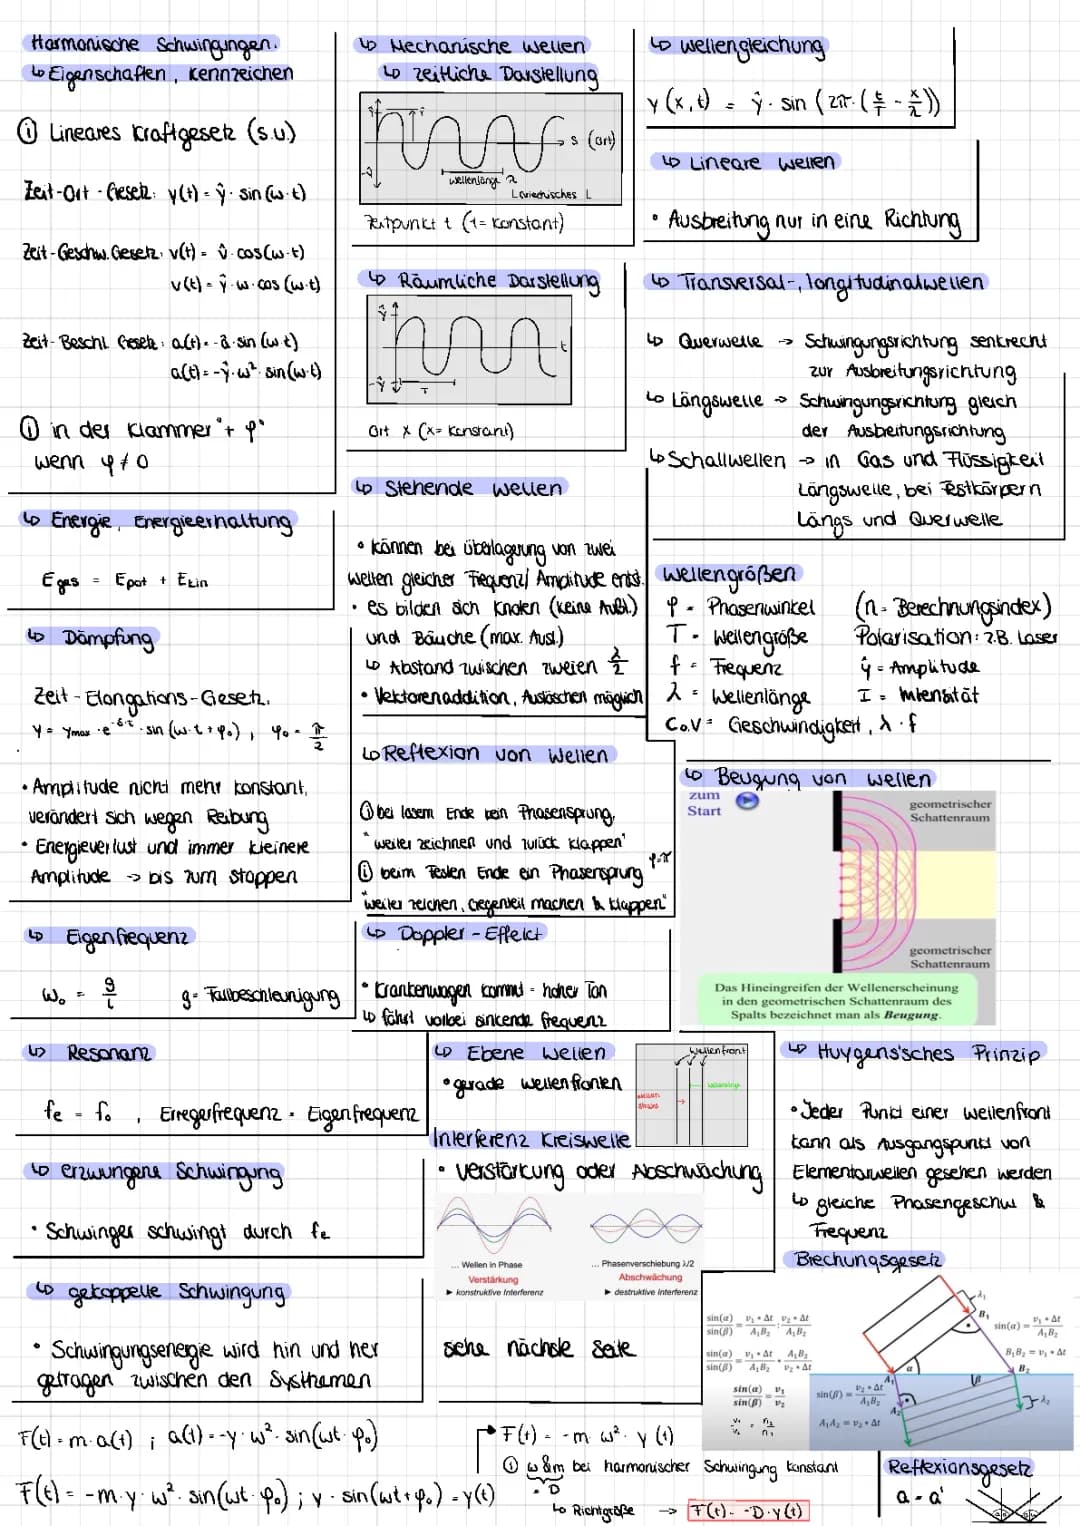 Harmonische Schwingungen.
↳ Eigenschaften, Kennzeichen
ⓘ Lineares Kraftgesetz (s.u.)
Zeit-Ort-Gesetz: y(t) = ŷ · sin(ω·t)
Zeit-Geschw. Gesetz: v(t) = v̂ · cos(ω·t)
v(t) = ŷ · ω · cos(ω·t)
Zeit-Beschl. Gesetz: a(t) = -â · sin(ω·t)
a(t) = -ŷ · ω² · sin(ω·t)
ⓘ in der Klammer "+ φ"
wenn φ ≠ 0
↳ Energie, Energieerhaltung
Eges = Epot + Ekin
↳ Dämpfung
Zeit-Elongations-Gesetz.
y = ymax · e^-δ·t · sin(ω·t + φ₀), φ₀ = π/2
• Amplitude nicht mehr konstant,
verändert sich wegen Reibung
• Energieverlust und immer kleinere
Amplitude → bis zum stoppen
↳ Eigenfrequenz
ω₀ = g/l g = Fallbeschleunigung
↳ Resonanz
fe = f₀, Erregerfrequenz = Eigenfrequenz
↳ erzwungene Schwingung
• Schwinger schwingt durch fe
↳ gekoppelte Schwingung
• Schwingungsenergie wird hin und her
getragen zwischen den Systhemen
F(t) = m·a(t) ; a(t) = -y·ω²·sin(ωt·φ₀)
F(t) = -m·y·ω²·sin(ωt·φ₀) ; y·sin(ωt+φ₀) = y(t)
↳ Mechanische Wellen
↳ zeitliche Darstellung
ŷ
s (Ort)
-ŷ
Wellenlänge λ
Griechisches L
Zeitpunkt t (t = konstant)
↳ Räumliche Darstellung
ŷ
t
-ŷ
T
Ort x (x = konstant)
↳ Stehende Wellen
• können bei Überlagerung von zwei
Wellen gleicher Frequenz/Amplitude entst.
• es bilden sich Knoten (keine Ausl.)
und Bäuche (max. Ausl.)
↳ Abstand zwischen zweien λ/2
• Vektorenaddition, Auslöschen möglich
↳ Reflexion von Wellen
ⓘ bei losem Ende kein Phasensprung,
"weiter zeichnen und zurück klappen"
ⓘ beim Festen Ende ein Phasensprung φ=π
"weiter zeichen, Gegenteil machen & klappen"
↳ Doppler-Effekt
• Krankenwagen kommt = hoher Ton
↳ fährt vorbei sinkende Frequenz
↳ Ebene Wellen
• gerade Wellenfronten
Wellenfront
Interferenz Kreiswelle
• Verstärkung oder Abschwächung
... Wellen in Phase
Verstärkung
► konstruktive Interferenz
... Phasenverschiebung λ/2
Abschwächung
► destruktive Interferenz
siehe nächste Seite
F(t) = -m·ω²·y(t)
ⓘ ω & m bei harmonischer Schwingung konstant
= D
↳ Richtgröße → F(t) = -D·y(t)
↳ Wellengleichung
y(x,t) = ŷ · sin(2π·(t/T - x/λ))
↳ Lineare Wellen
• Ausbreitung nur in eine Richtung
↳ Transversal-, longitudinalwellen
↳ Querwelle → Schwingungsrichtung senkrecht
zur Ausbreitungsrichtung
↳ Längswelle → Schwingungsrichtung gleich
der Ausbeitungsrichtung
↳ Schallwellen → in Gas und Flüssigkeit
Längswelle, bei Festkörpern
Längs und Querwelle
Wellengrößen
φ = Phasenwinkel (n = Berechnungsindex)
T = Wellengröße Polarisation: z.B. Laser
f = Frequenz ŷ = Amplitude
λ = Wellenlänge I = Intensität
C o. V = Geschwindigkeit, λ·f
↳ Beugung von Wellen
zum
Start
geometrischer
Schattenraum
geometrischer
Schattenraum
Das Hineingreifen der Wellenerscheinung
in den geometrischen Schattenraum des
Spalts bezeichnet man als Beugung.
↳ Huygens'sches Prinzip
• Jeder Punkt einer Wellenfront
kann als Ausgangspunkt von
Elementarwellen gesehen werden
↳ gleiche Phasengeschw &
Frequenz
Brechungsgesetz
sin(α)/sin(β) = v₁•Δt/A₁B₂ : v₂•Δt/A₁B₂
sin(α)/sin(β) = v₁•Δt/A₁B₂ • A₁B₂/v₂•Δt
sin(α)/sin(β) = v₁/v₂
v₁/v₂ = n₂/n₁
λ₁
B₁
sin(α) = v₁•Δt/A₁B₂
B₁B₂ = v₁•Δt
B₂
α
A₁
β
sin(β) = v₂•Δt/A₁B₂
A₂
λ₂
A₁A₂ = v₂•Δt
Reflexionsgesetz
α = α'